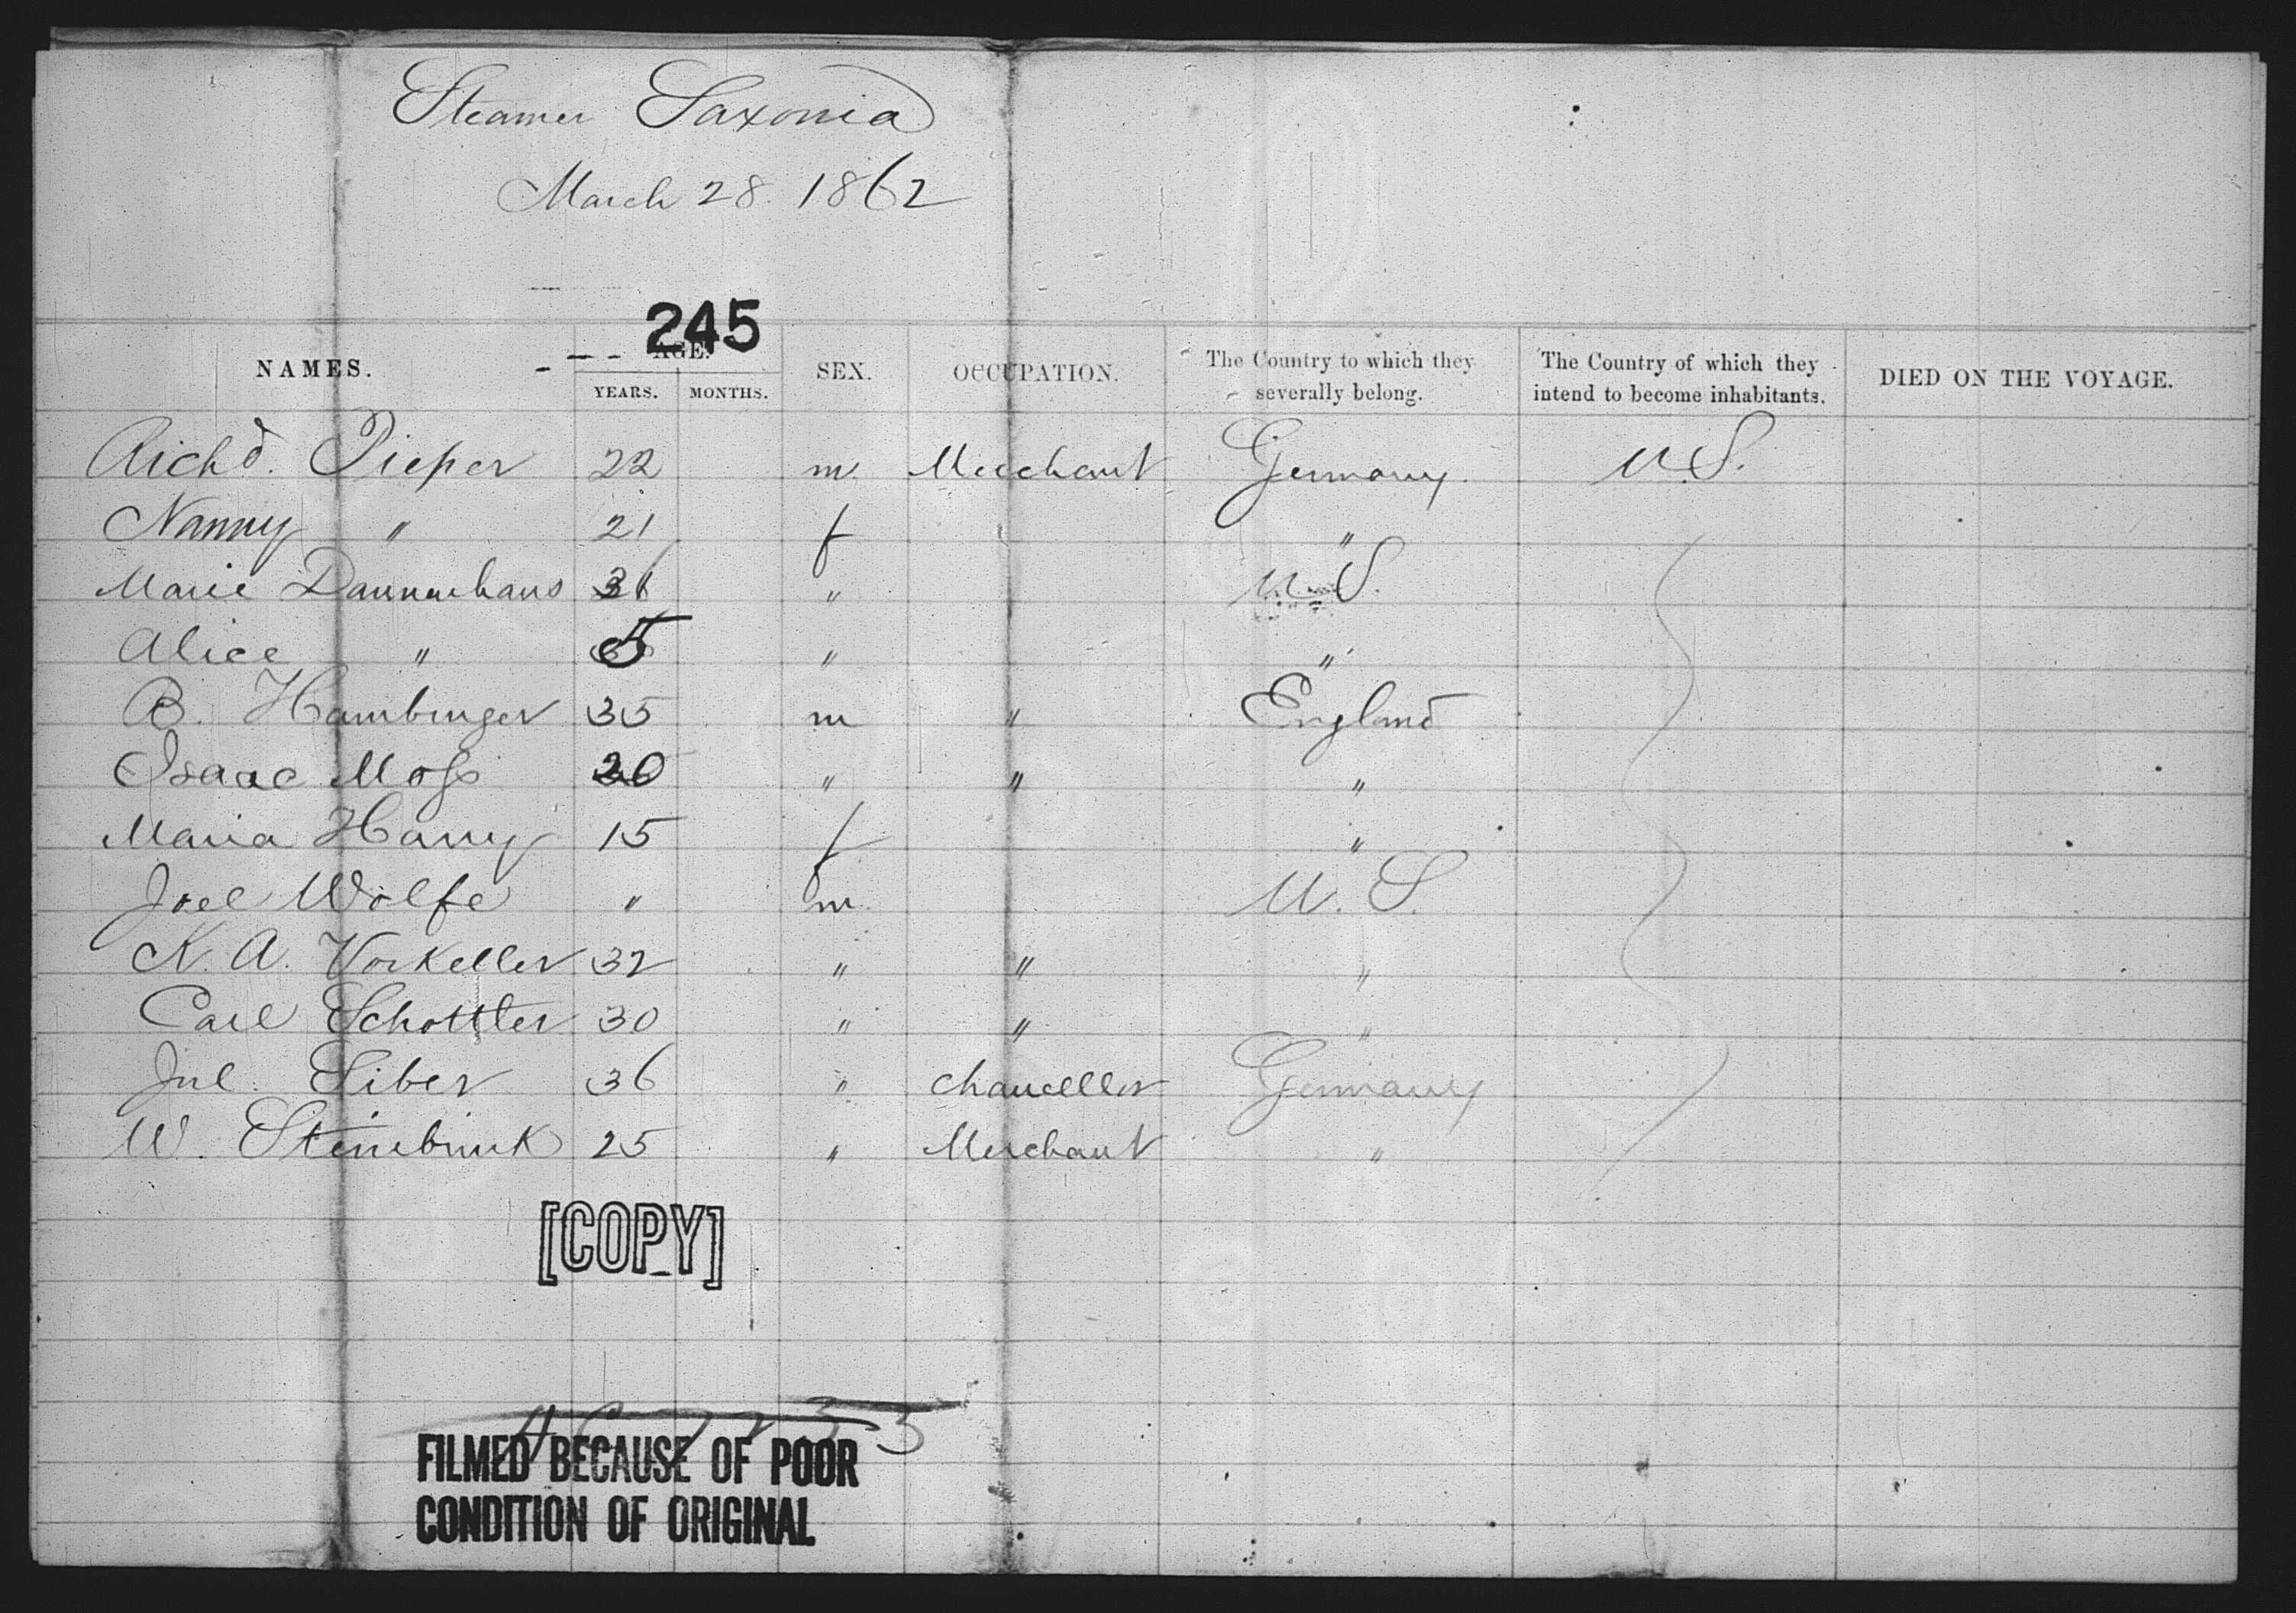 Steamer Saxonia
March 28. 1862
245
NAMES. AGE. SEX. OCCUPATION. The Country to which they severally belong. The Country of which they intend to become inhabitants. DIED ON THE VOYAGE.
YEARS. MONTHS.
Richd. Pieper 22 m. Merchant Germany. U.S.
Nanny " 21 f "
Marie Dannenhaus 36 " U.S.
Alice " 5 " "
B. Hamburger 35 m " England
Isaac Moss 20 " " "
Maria Harry 15 f "
Joel Wolfe " m. U.S.
N. A. Vorkeller 32 " " "
Carl Schottler 30 " " "
Jul. Siber 36 " Chancellor Germany
W. Steinbrink 25 " Merchant "
[COPY]
FILMED BECAUSE OF POOR
CONDITION OF ORIGINAL